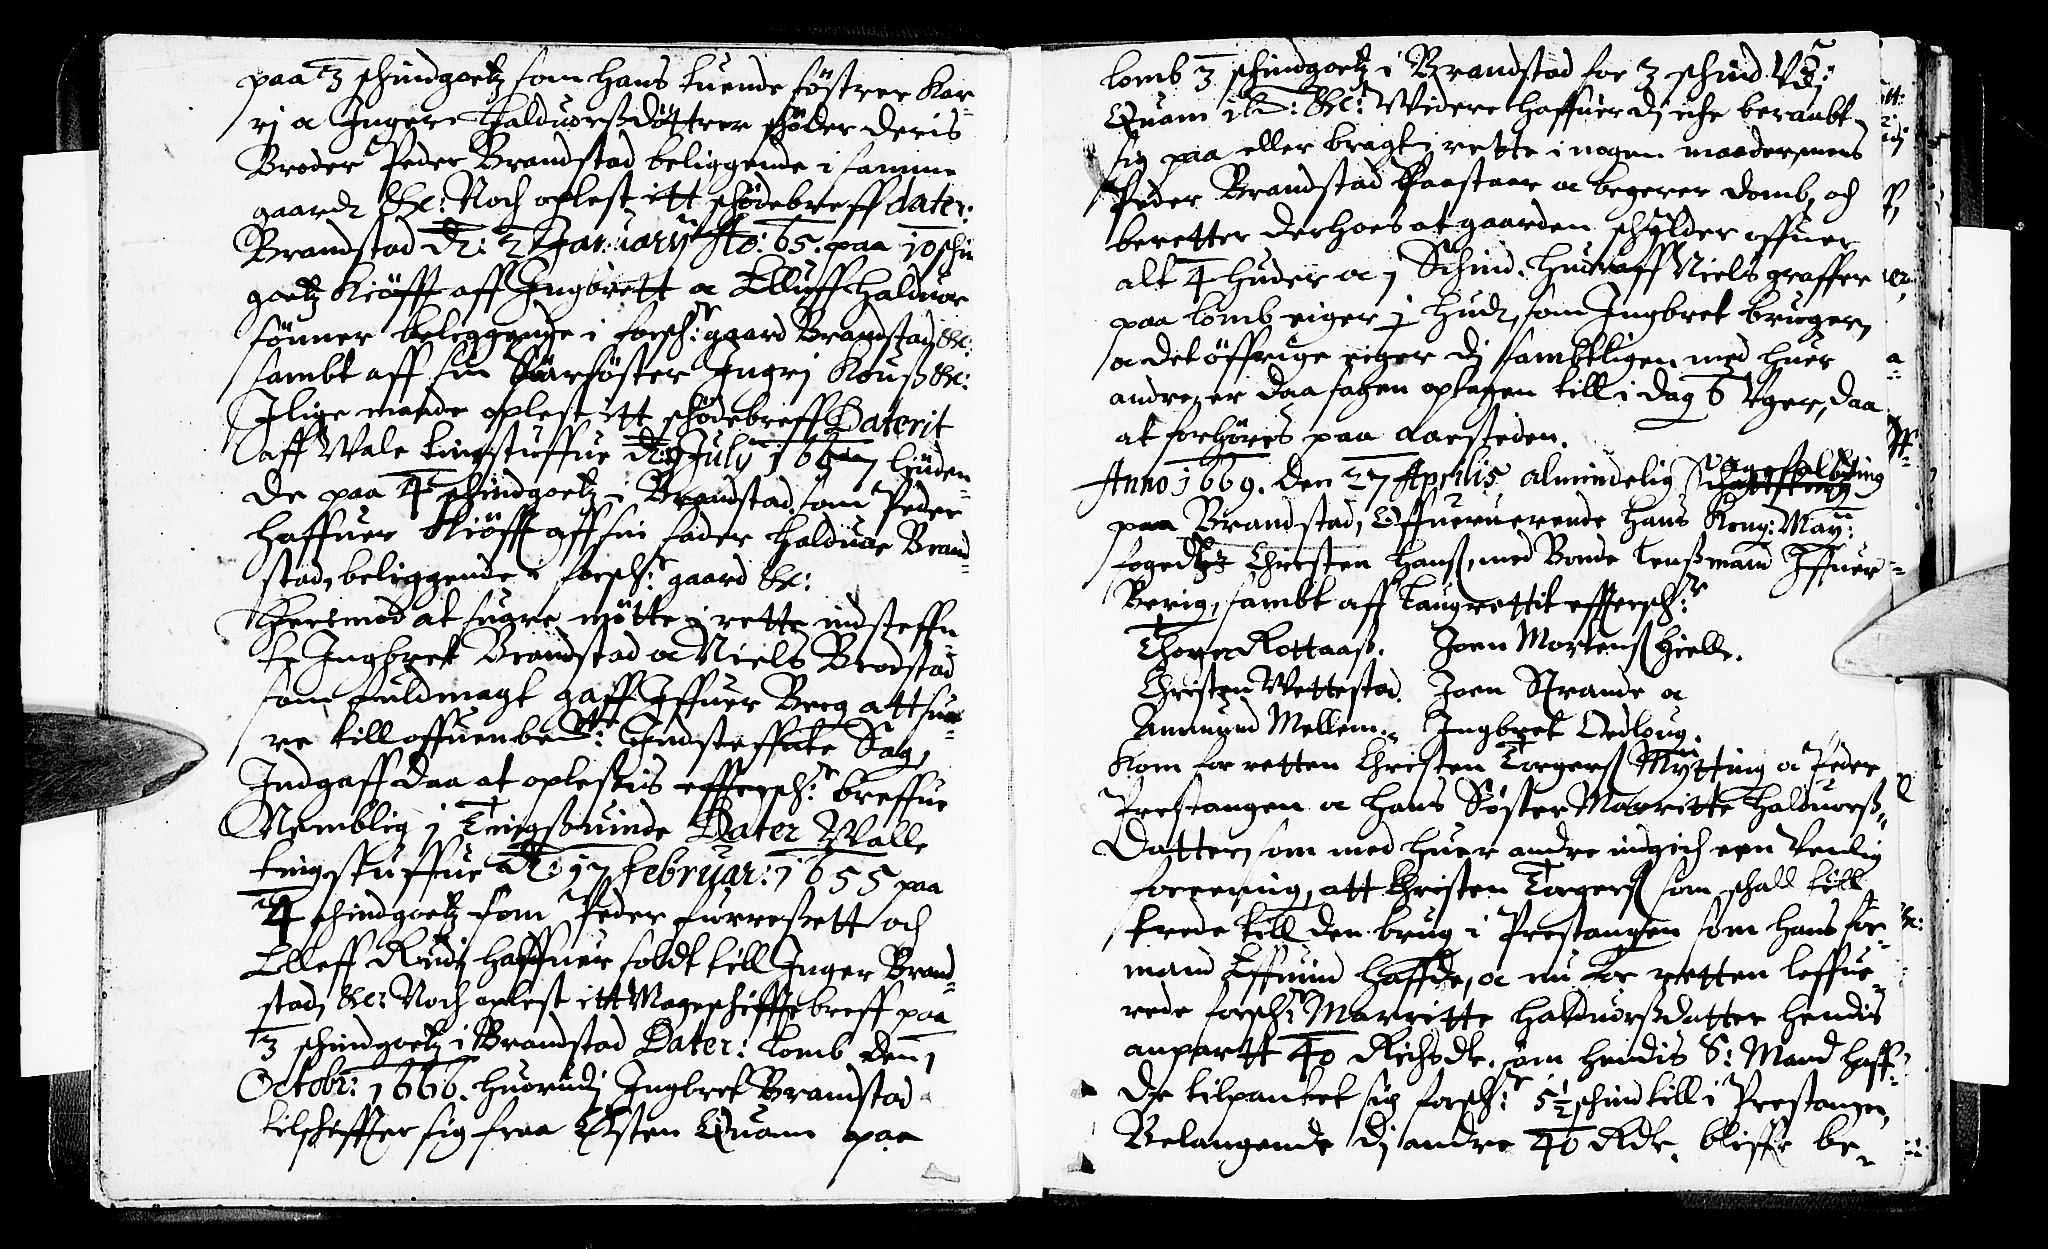 paa 3 schindgoetz som hans tuende söstrer Kar-
rj oc Inger Halduorßdöttrer schöder deris
Broder Peder Brandstad beliggende i samme
gaard &c: Noch oplest itt schödebreff dater:
Brandstad d: 2 January Ao: 65. paa 10 schin
goetz Kiöfft aff Ingbrett oc Elluff Halduor
sönner beliggende i forsch:r gaard Brandstad &c:
sambt aff sin söster Ingrj &c:
Jlige maade oplest itt schödebreff Daterit
aff Wale tingstuffue d: July liuden-
de paa 4 schindgoetz i Brandstad som Peder
haffuer Kiöfft aff sin fader Halduor Brand-
stad, beliggende i forsch:r gaard &c:
Herimod at suare mötte i rette indsteffn
te Ingbret Brandstad oc Niels Brodstad
som fuldmagt gaff Iffuer Berg att sua-
re till offuenbe:te Indsteffnte Sag,
Indgaff daa at oplesis effersch:r breffue
Nemblig j Tingßuinde Dater Walle
tingstuffue d: 17 Februar: 1655 paa
4 schindgoetz som Peder Furresett och
Elleff Rudj haffuer soldt till Inger Brand-
stad, &c: Noch oplest itt Mageschiffte breff paa
3 schindgoetz i Brandstad Dater: Lomb den 1
Octobr: 1666. huorudj Ingbret Brandstad
tilschiffter sig fraa Østen Quam paa
lomb 3 schindgoetz i Brandstad for 3 schind udj
Quam ib: &c: Widere haffuer dj iche beraabt
sig paa eller bragt i rette i nogen maader, mens
Peder Brandstad Paastaar oc begerer domb, och
beretter derhoes at gaarden schylder offuer
alt 4 huder oc 1 Schind. huoraff Niels graffer
paa lomb eiger j hud, som Ingbret bruger,
oc det öffrige eiger dj sambtligen med huer
andre, er daa sagen optagen till i dag 6 Uger, daa
at forhöres paa aarsteden.
Anno 1669. Den 27 Aprilis almindelig ting
paa Brandstad, Offueruerende Hans Kong: May:
foged Christen Hanß, med Bonde Lenßmand Iffuer
Berig, sambt aff Laugrettit effersch:r
Thorger Rottaas. Joen Mortenß Hielle.
Christen Wettestad. Joen Strande oc
Ammund Mellem. Ingbret Odloug.
Kom for retten Christen Torgerß Mytting oc Peder
Prestangen oc hans Söster Marritte Halduorß-
Datter, som med huer andre indgich een Venlig
foreening, att Christen Torgerß som schall till
trede till den brug i Prestangen som hans for-
mand Effuind haffde, oc nu for retten leffue-
rede forsch:r Marritte Halduorßdatter hendis
anpartt 40 Richsdr. som hendis S: Mand haff-
de tilpantet sig forsch:r 5½ schind till i Prestangen,
Belangende dj andre 40 Rdr. bleff be-